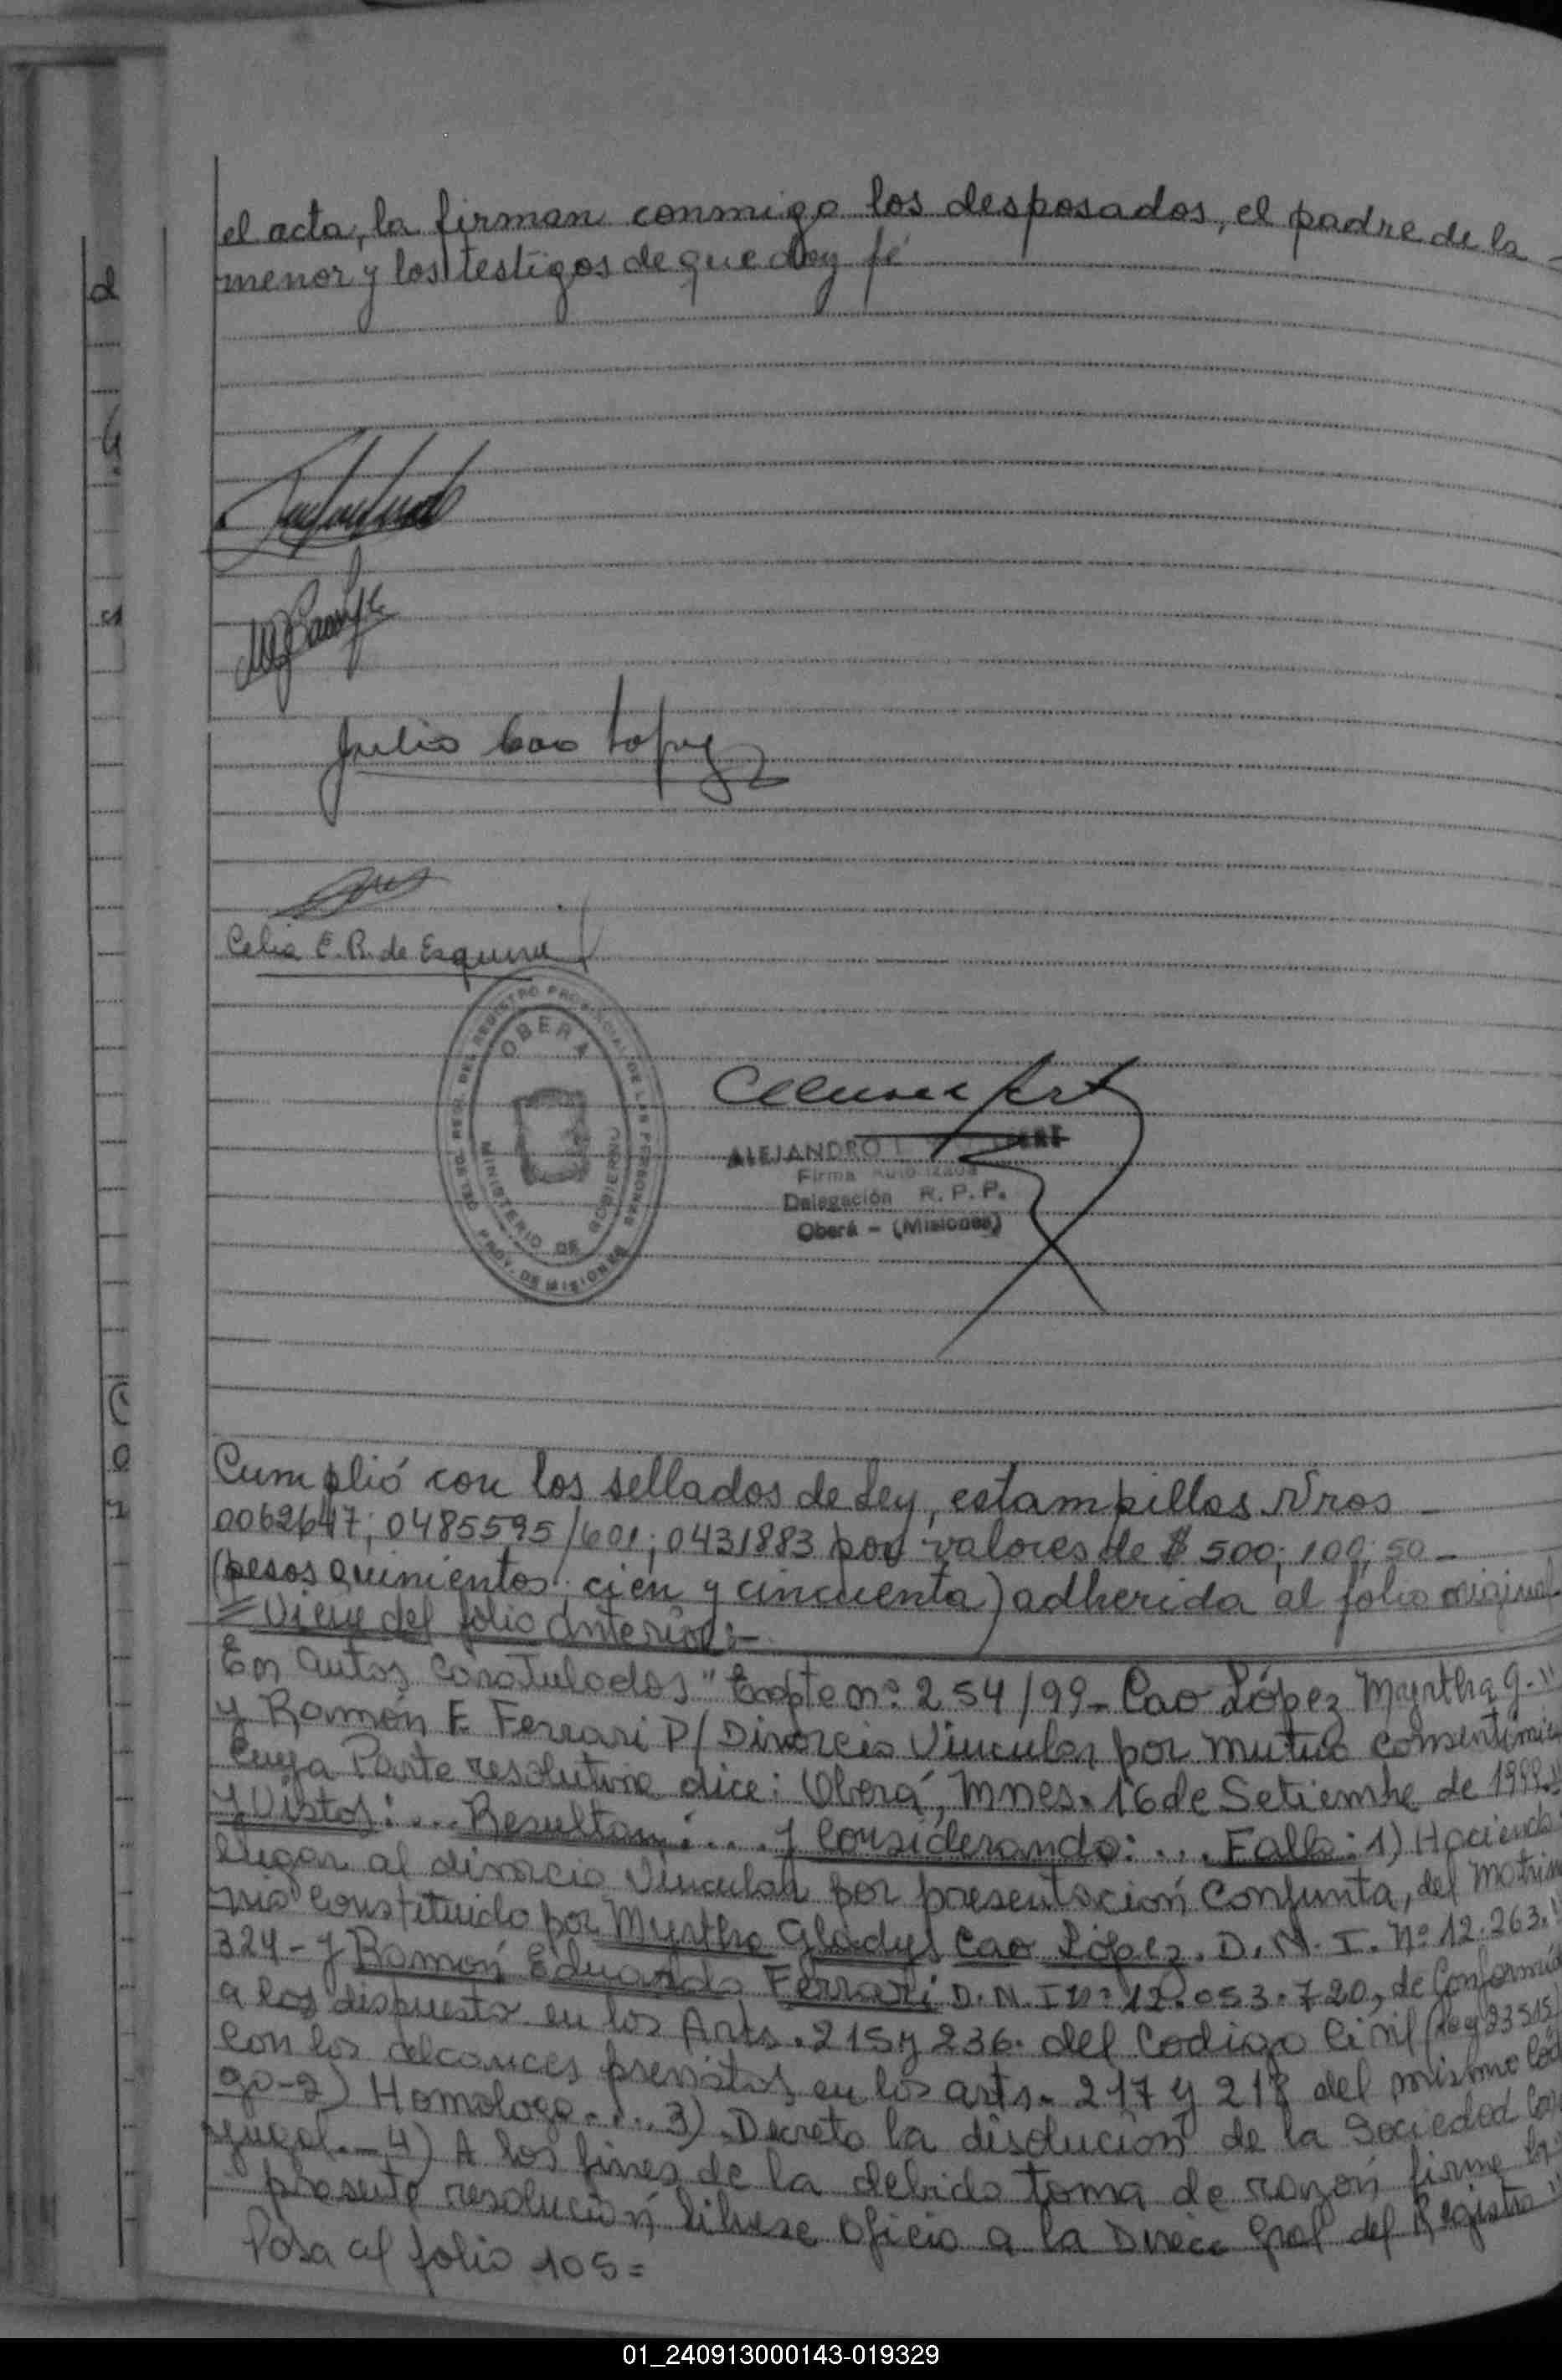 el acta, la firman conmigo los desposados, el padre de la
menor y los testigos de que doy fé
Julio Cao Lopez
Celia E. R. de Esquivel
DEL REGISTRO PROVINCIAL DE LAS PERSONAS
OBERA
MINISTERIO DE GOBIERNO
PROV. DE MISIONES
ALEJANDRO
Firma Autorizada
Delegación R. P. P.
Oberá - (Misiones)
Cumplió con los sellados de Ley, estampillas Nros
0062647; 0485595/601; 0431883 por valores de $ 500; 100; 50 -
(pesos quinientos cien y cincuenta) adherida al folio original
= Viene del folio Anterior:-
En autos caratulados "Expte nº 254/99- Cao López Myrtha G.
y Ramón E. Ferrari P/ Divorcio Vincular por mutuo consentimie
Cuya Parte resolutiva dice: Oberá, Mnes. 16 de Setiembre de 1999.
Y Vistos: ... Resultan: ... y Considerando: ... Fallo: 1) Haciendo
lugar al divorcio Vincular por presentación Conjunta, del Matrim
nio Constituido por Myrtha Gladys Cao López. D. N. I. Nº 12.263.
324- y Ramón Eduardo Ferrari D.N.I Nº 12.053.720, de Conformid
a los dispuesto en los Arts. 215 y 236. del Codigo Civil (Ley 23515
Con los alcances previstos en los arts. 217 y 218 del mismo Cód
go-2) Homologo.... 3) Decreto la disolución de la Sociedad Con
yugal.- 4) A los fines de la debida toma de razón firme la
presente resolución líbrese Oficio a la Direcc Gral del Registro
Pasa al folio 105=
01_240913000143-019329